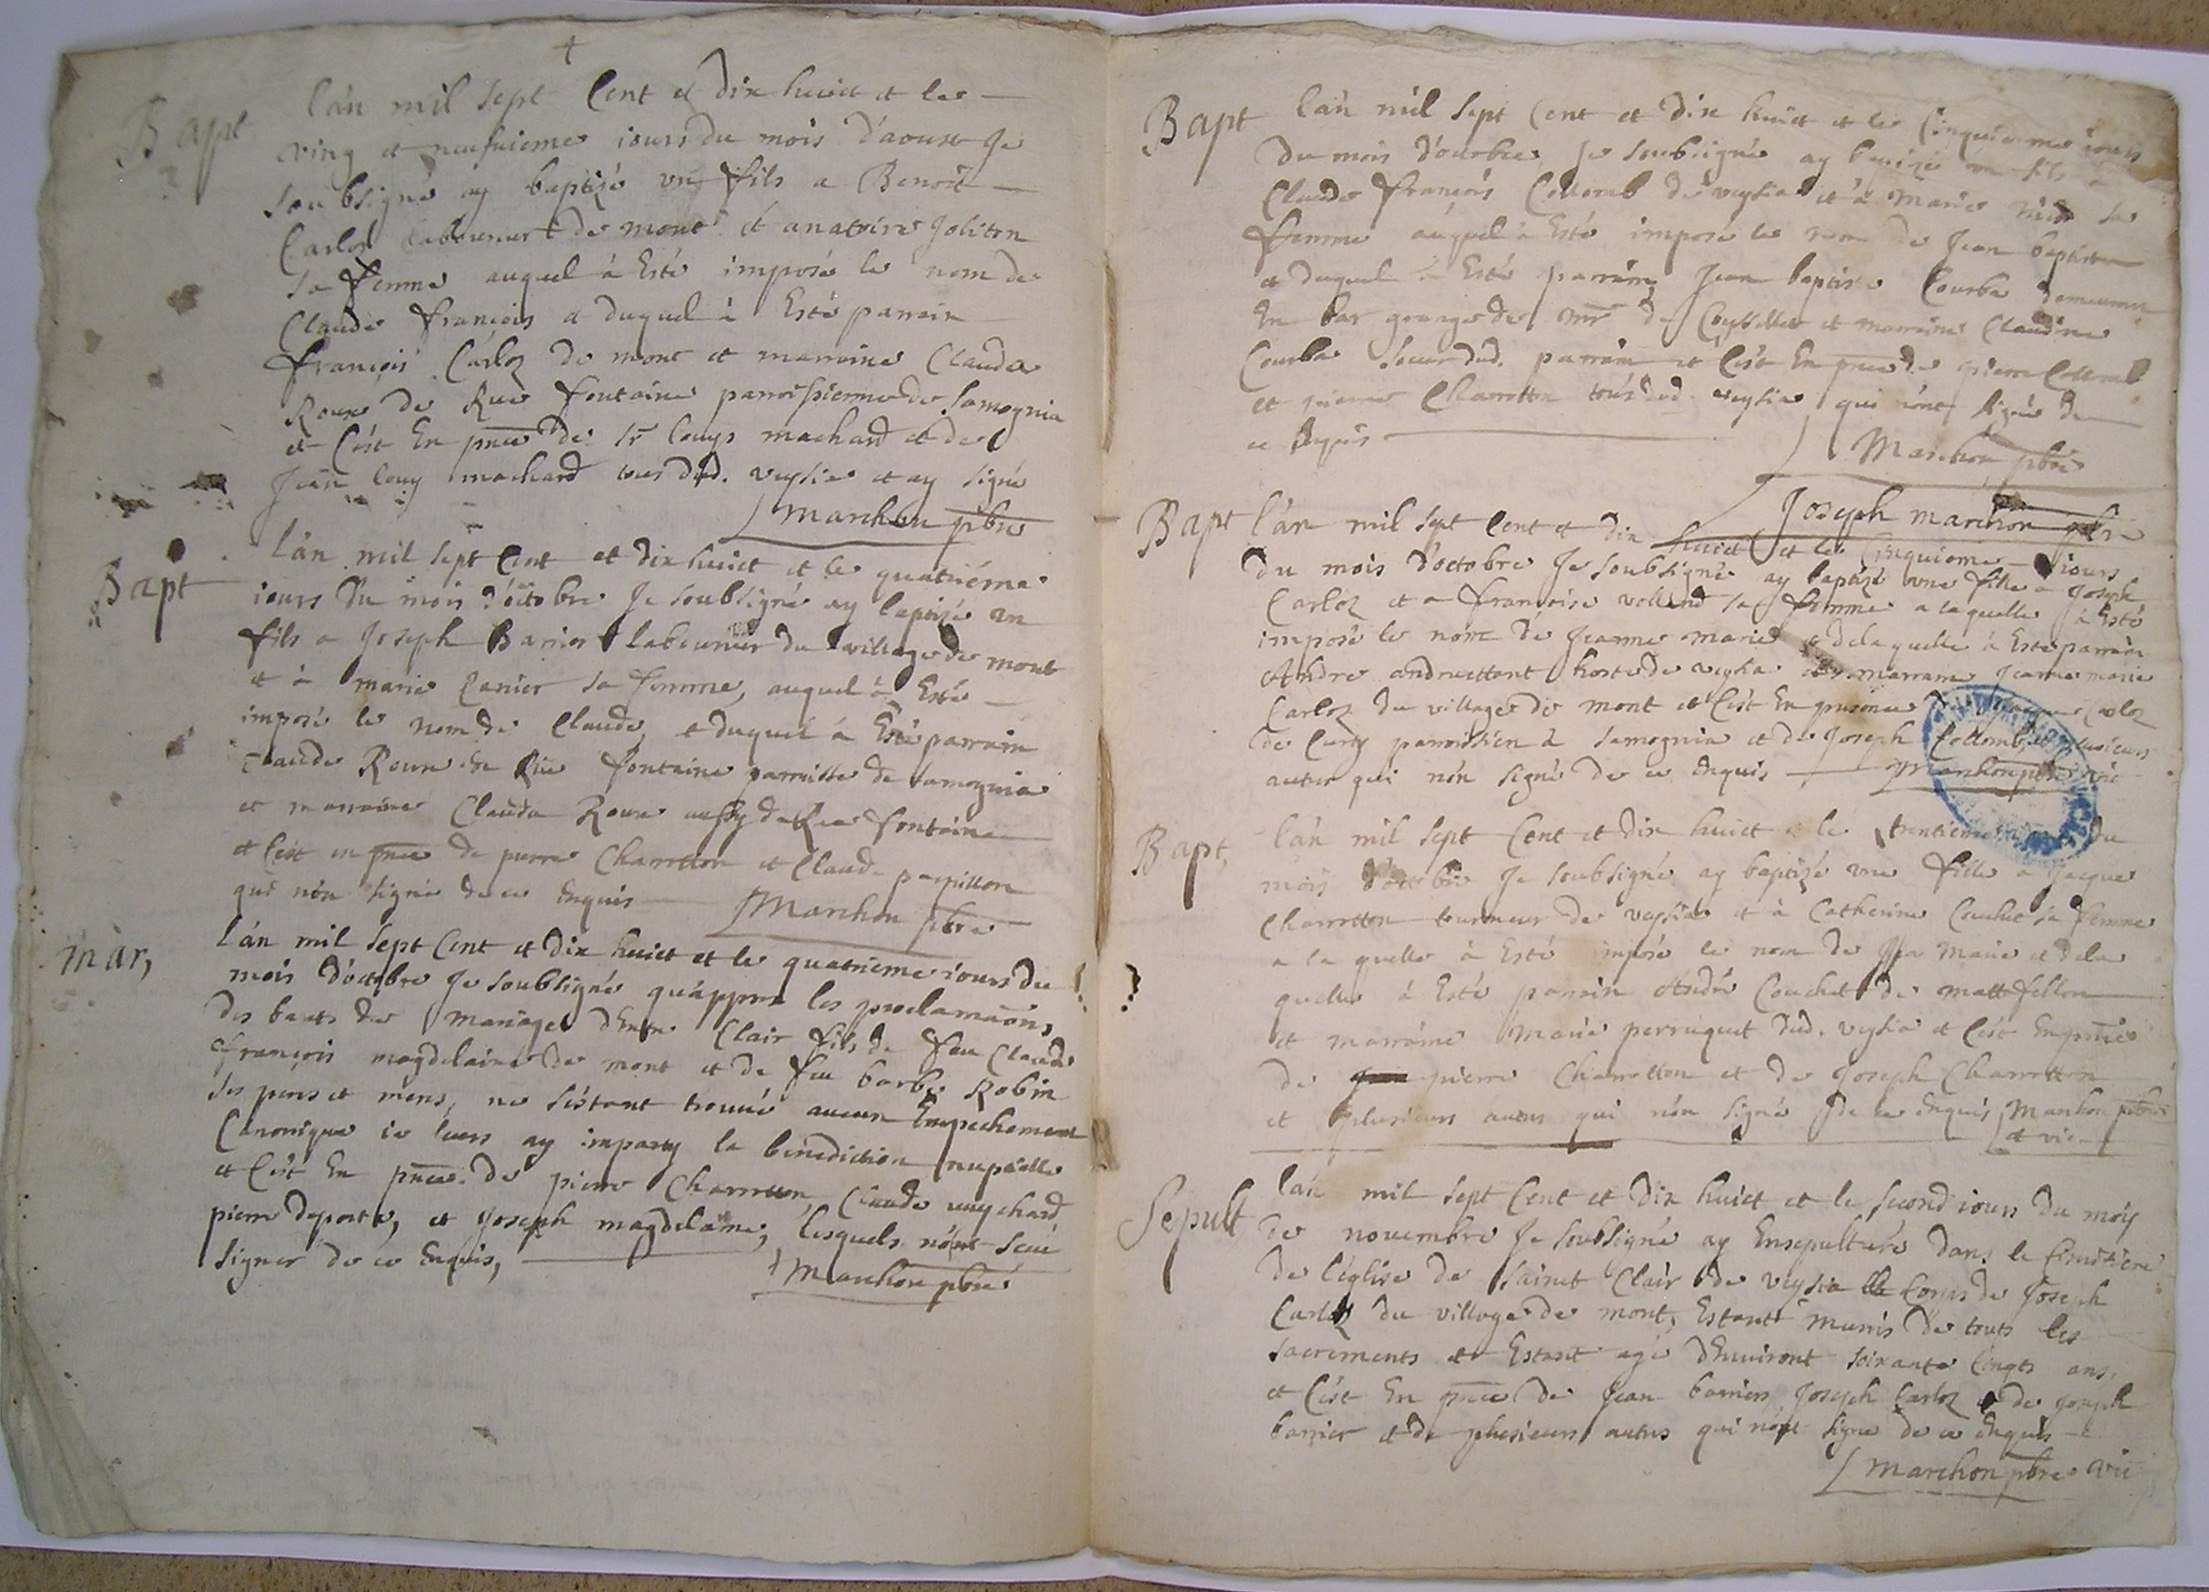 Bapt
l'an mil sept Cent et dix huict et le
ving et neufuieme iours du mois d'aoust Je
soubsigné ay baptizé un fils a Benoit
Carloz laboureur de mont et anatoire Joliton
sa femme auquel à Esté imposé le nom de
Claude François et duquel à Esté parrain
françois Carloz de mont et marraine Clauda
Roux de Rue fontaine parroissienne de Samognia
et C'est En pnce de Sr Louys machard et de
Jean Louy machard tous dud. veysia et ay signé
Marchon pbre
Bapt
l'an mil sept Cent et dix huict et le quatriéme
iours du mois d'octobre Je soubsigné ay baptizé un
fils a Joseph Barrier laboureur du village de mont
et à marie Ranier sa femme, auquel à Esté
imposé le nom de Claude, et duquel à Esté parrain
Claude Roux de Rue fontaine parroisse de Samognia
et marraine Clauda Roux aussy de Rue fontaine
et C'est en pnce de pierre Charretton et Claude papillon
qui nón signé de ce Enquis Marchon pbre
mar,
l'an mil sept Cent et dix huict et le quatrieme iours du
mois d'octobre Je soubsigné qu'appres les proclamaôns
des bants de mariage d'Entre Clair fils de feu Claude
françois magdelaine de mont et de feu barbe Robin
ses peres et meres, ne s'estant trouué aucun Empechement
Canonique ie leurs ay imparty la benediction nuptialle
et C'est En pnce de pierre Charretton, Claude uuychard
pierre deporte, et Joseph magdelaine, lesquels n'ont sceu
signer de ce Enquis,
Marchon pbre
Bapt
l'an mil sept Cent et dix huict et le Cinquieme iours
du mois d'octobre Je soubsigné ay baptizé un fils a
Claude françois Collomb de veysia et à Marie sa
femme auquel à Esté imposé le nom de Jean baptiste
et duquel à Esté parrain Jean baptiste Courbe demeurant
En bas grange de Mr de et marraine Claudine
Courbe soeur dud. parrain et C'est En pnce de pierre Collomb
et pierre Charretton tous dud. veysia qui n'ont signé de
ce Enquis
Marchon pbre
Bapt
Joseph marchon pbre
l'an mil sept Cent et dix huict et le Cinquieme iours
du mois d'octobre Je soubsigné ay baptizé une fille a Joseph
Carloz et a francoise volland sa femme a laquelle à Esté
imposé le nom de Jeanne marie et de laquelle à Esté parrain
Andre andruettant hoste de veysia et marraine Jeanne marie
Carloz du village de mont et C'est En presence de Carloz
de Curty parroissien de Samognia et de Joseph Collomb et plusieurs
autres qui nón signé de ce Enquis Marchon pbre vic
Bapt,
l'an mil sept Cent et dix huict et le trentieme du
mois d'octobre Je soubsigné ay baptizé une fille a Jacque
Charretton tourneur de veysia et à Catherine Couchet sa femme
a la quelle à Esté imposé le nom de Marie et de la
quelle à Esté parrain André Couchet de mattafellon
et marraine Marie perruquet dud. veysia et C'est En pnce
de pierre Charretton et de Joseph Charretton
et plusieurs autres qui nón signé de ce Enquis Marchon pbre
et vic
Sepult
l'an mil sept Cent et dix huict et le second iours du moy
de nouembre Je soubsigné ay Ensepulturé dans le Cimitiere
de l'église de sainct Clair de veysia le Corps de Joseph
Carloz du village de mont, Estant munis de touts les
sacrements et Estant agé d'Enuiront soixante Cinqts ans,
et C'est En pnce de Jean barrier, Joseph Carloz et de Joseph
barrier et de plusieurs autres qui nónt signé de ce Enquis
Marchon pbre vic